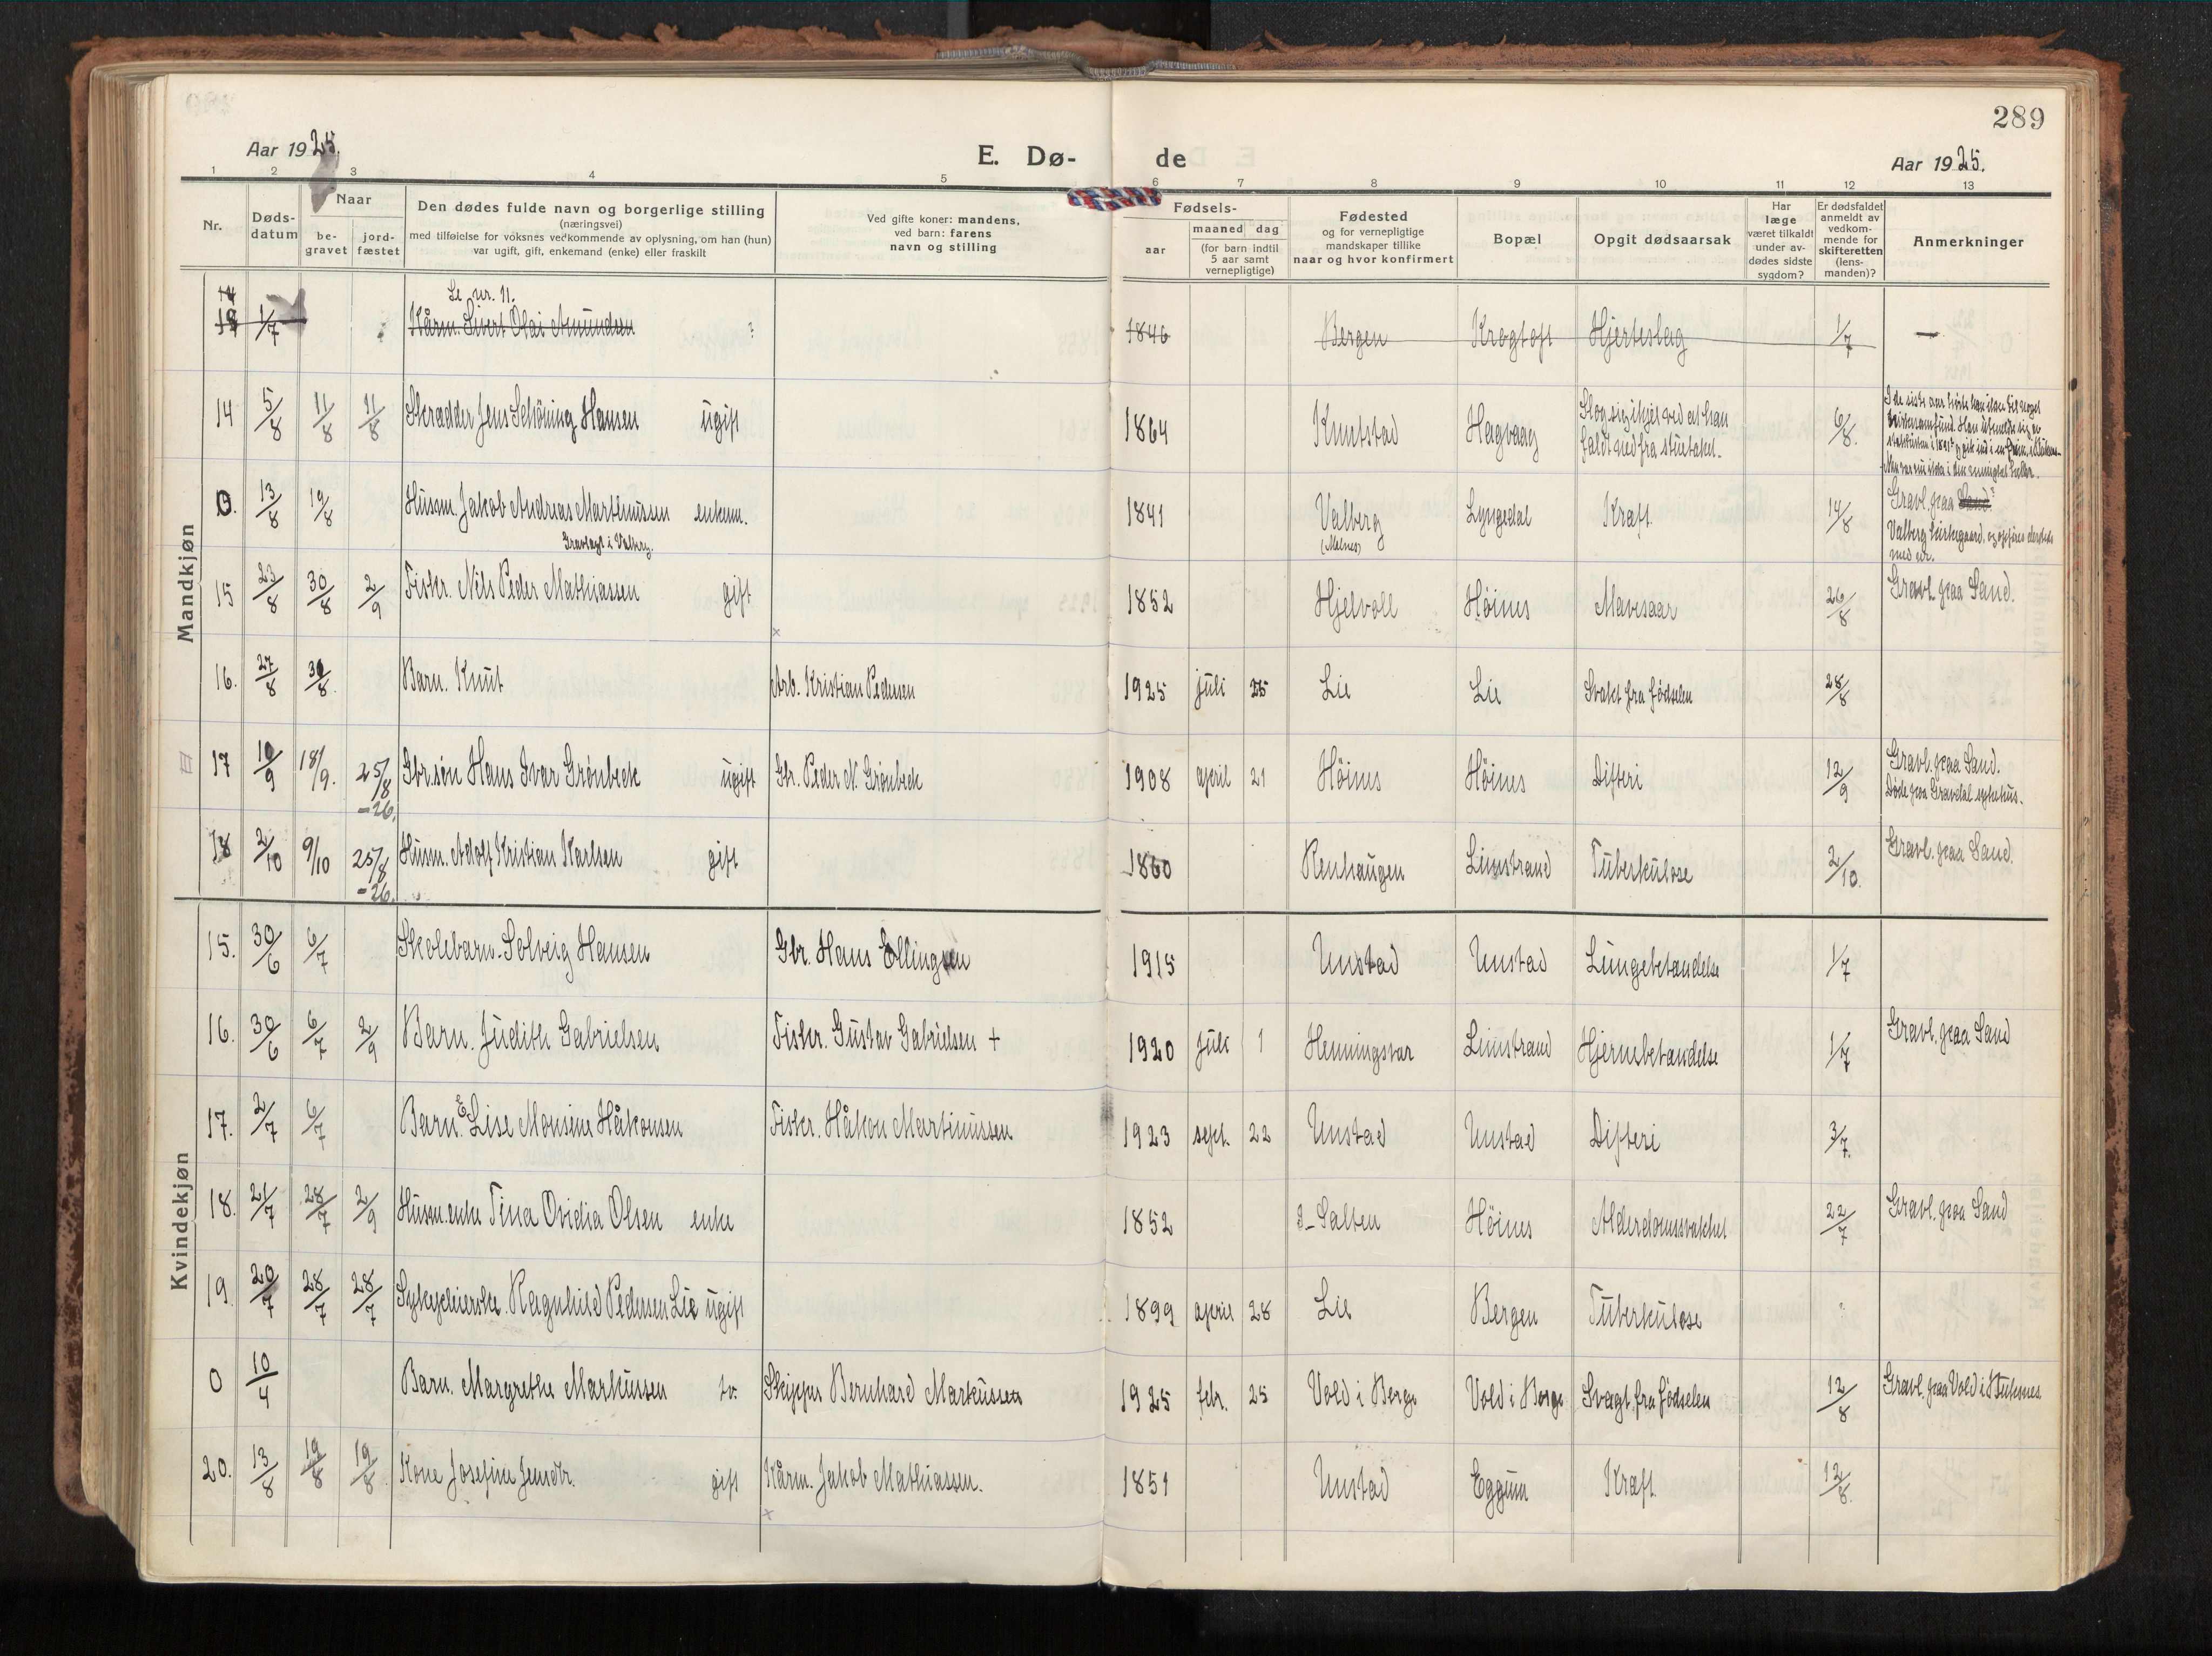 289
Aar 1925.
E. Dø-
de
Aar 1925.
1 2 3 4 5 6 7 8 9 10 11 12 13
Nr.
Døds-
datum
Naar
be-
gravet
jord-
fæstet
Den dødes fulde navn og borgerlige stilling
(næringsvei)
med tilføielse for voksnes vedkommende av oplysning, om han (hun)
var ugift, gift, enkemand (enke) eller fraskilt
Ved gifte koner: mandens,
ved barn: farens
navn og stilling
Fødsels-
aar
maaned dag
(for barn indtil
5 aar samt
vernepligtige)
Fødested
og for vernepligtige
mandskaper tillike
naar og hvor konfirmert
Bopæl
Opgit dødsaarsak
Har
læge
været tilkaldt
under av-
dødes sidste
sygdom?
Er dødsfaldet
anmeldt av
vedkom-
mende for
skifteretten
(lens-
manden)?
Anmerkninger
Mandkjøn
Se nr. 11.
1/7 Kårm. Sivert Olai Amundsen ? 1846 Bergen Krogtoft Hjerteslag 1/7 —
14 5/8 11/8 11/8 Skrædder Jens Schöning Hansen ugift 1864 Knutstad Hagvaag Slog sig ihjel ved at han 6/8.
faldt ned fra stuetaket.
0. 13/8 19/8 Husm. Jakob Andreas Marthinussen enkem. 1841 Valberg Lyngedal Kræft. 14/8 Gravl. paa Sand?
Gravlagt i Valberg. (Malnes) Valberg kirkegaard, og opføres dersteds
med nr.
15 23/8 30/8 2/9 Fisker. Nils Peder Mathiassen gift 1852 Hjelvoll Höines Mavesaar 26/8 Gravl. paa Sand.
16. 27/8 30/8. Barn. Knut Arb. Kristian Pedersen 1925 juli 25 Lie Lie Svakt fra fødselen 28/8
17 10/9 18/9. 25/8 -26. Gbr.søn Hans Ivar Grönbeck ugift Gbr. Peder N. Grönbeck 1908 april 21 Höines Höines Difteri 12/9 Gravl. paa Sand.
Døde paa Gravdal sykehus.
18 2/10 9/10 25/8 -26. Husm. Adolf Kristian Karlsen gift 1860 Renhaugen Limstrand Tuberkulose 2/10. Gravl. paa Sand.
Kvindekjøn
15. 30/6 6/7 Skolebarn. Solveig Hansen Gbr. Hans Ellingsen 1915 Unstad Unstad Lungebetændelse 1/7
16. 30/6 6/7 2/9 Barn. Judith Gabrielsen Fisker. Gustav Gabrielsen + 1920 juli 1 Henningsvær Limstrand Hjernebetændelse 1/7 Gravl. paa Sand
17. 2/7 6/7 Barn. Elise Monsine Håkonsen Fisker. Håkon Martinussen 1923 sept. 22 Unstad Unstad Difteri 3/7.
18. 21/7 28/7 2/9 Husm.enke Tina Ovidia Olsen enke 1852 3-Salten Höines Alderdomssvakhet 22/7 Gravl. paa Sand
19. 20/7 28/7 28/7 Sykepleierske. Ragnhild Pedersen Lie ugift 1899 april 28 Lie Bergen Tuberkulose ?
0 10/4 Barn. Margrethe Markussen tv. Skipper Bernhard Markussen 1925 febr. 25 Vold i Borge Vold i Borge Svagt fra fødselen 12/8 Gravl. paa Vold i Buksnes
20. 13/8 19/8 19/8 Kone Josefine Jensdtr. gift Kårm. Jakob Mathiassen. 1851 Unstad Eggum Kræft. 12/8.